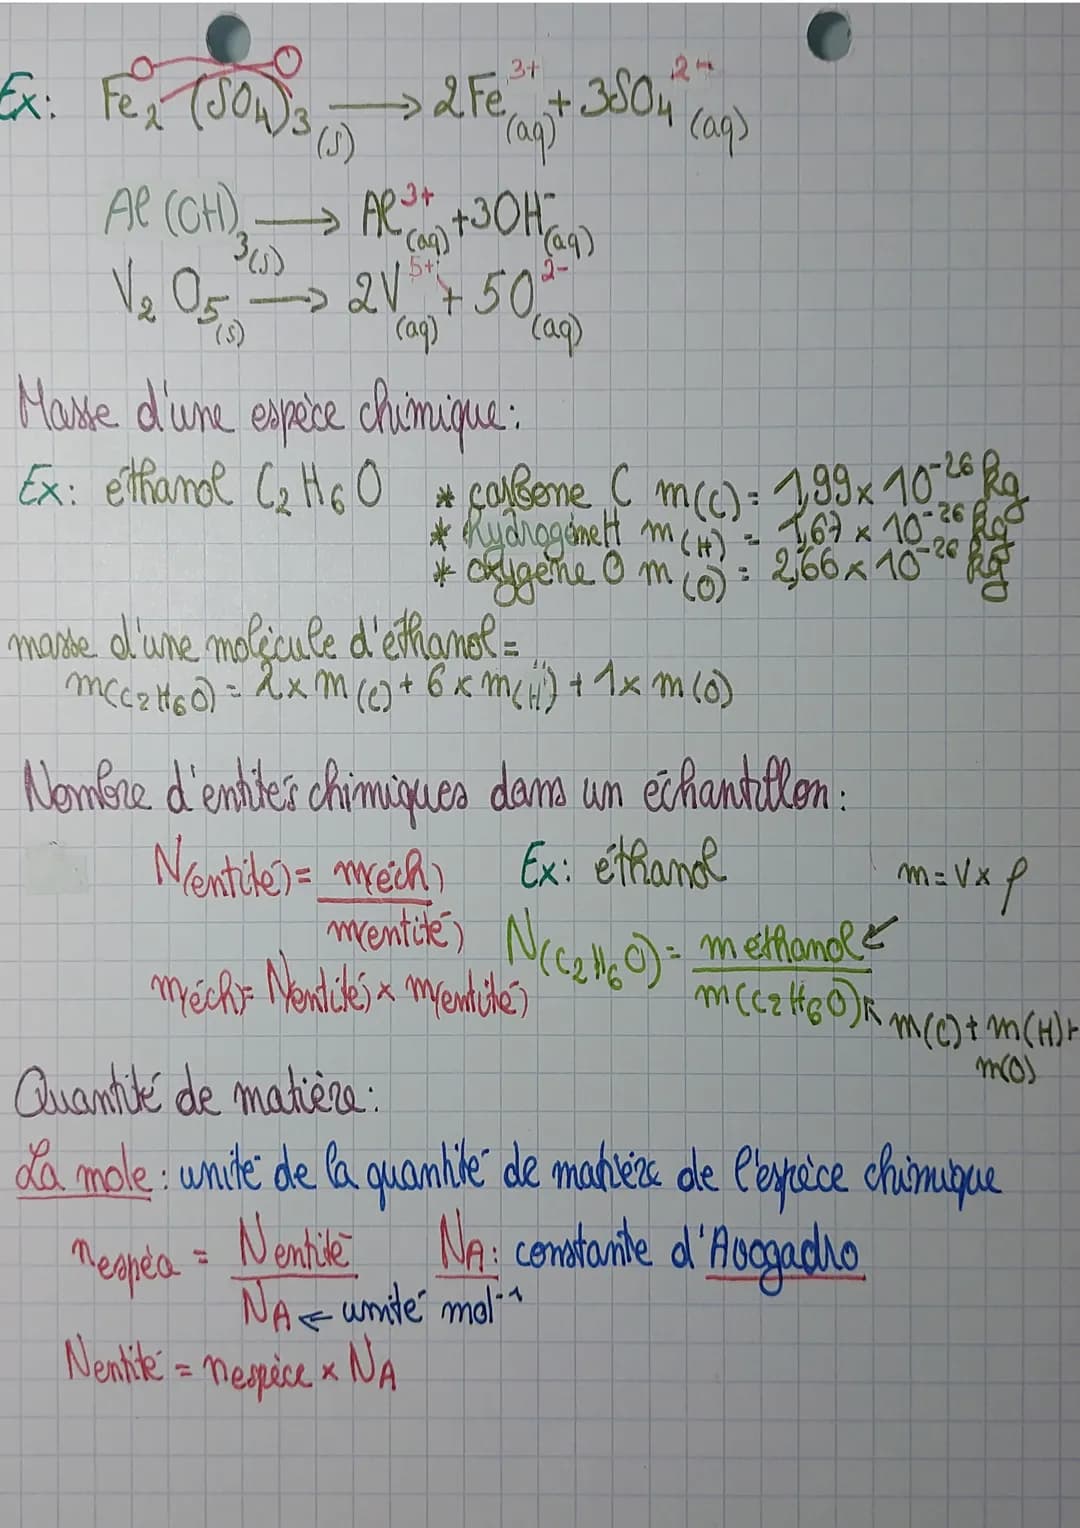 Ex: Fe₂(SO₄)₃(s) → 2Fe³⁺(aq) + 3SO₄²⁻(aq)
Al(OH)₃(s) → Al³⁺(aq) + 3OH⁻(aq)
V₂O₅(s) → 2V⁵⁺(aq) + 5O²⁻(aq)
Masse d'une espèce chimique:
Ex: éthanol C₂H₆O * carbone C m(C) = 1,99 × 10⁻²⁶ kg
* hydrogène H m(H) = 1,67 × 10⁻²⁶ kg
* oxygène O m(O) = 2,66 × 10⁻²⁶ kg
masse d'une molécule d'éthanol =
m(C₂H₆O) = 2 × m(C) + 6 × m(H) + 1 × m(O)
Nombre d'entités chimiques dans un échantillon:
N(entité) = m(éch) / m(entité)
m(éch) = N(entité) × m(entité)
Ex: éthanol
m = V × ρ
N(C₂H₆O) = m éthanol / m(C₂H₆O)
m(C) + m(H) +
m(O)
Quantité de matière:
La mole: unité de la quantité de matière de l'espèce chimique
nespèce = Nentité / NA ← unité mol⁻¹
NA: constante d'Avogadro
Nentité = nespèce × NA